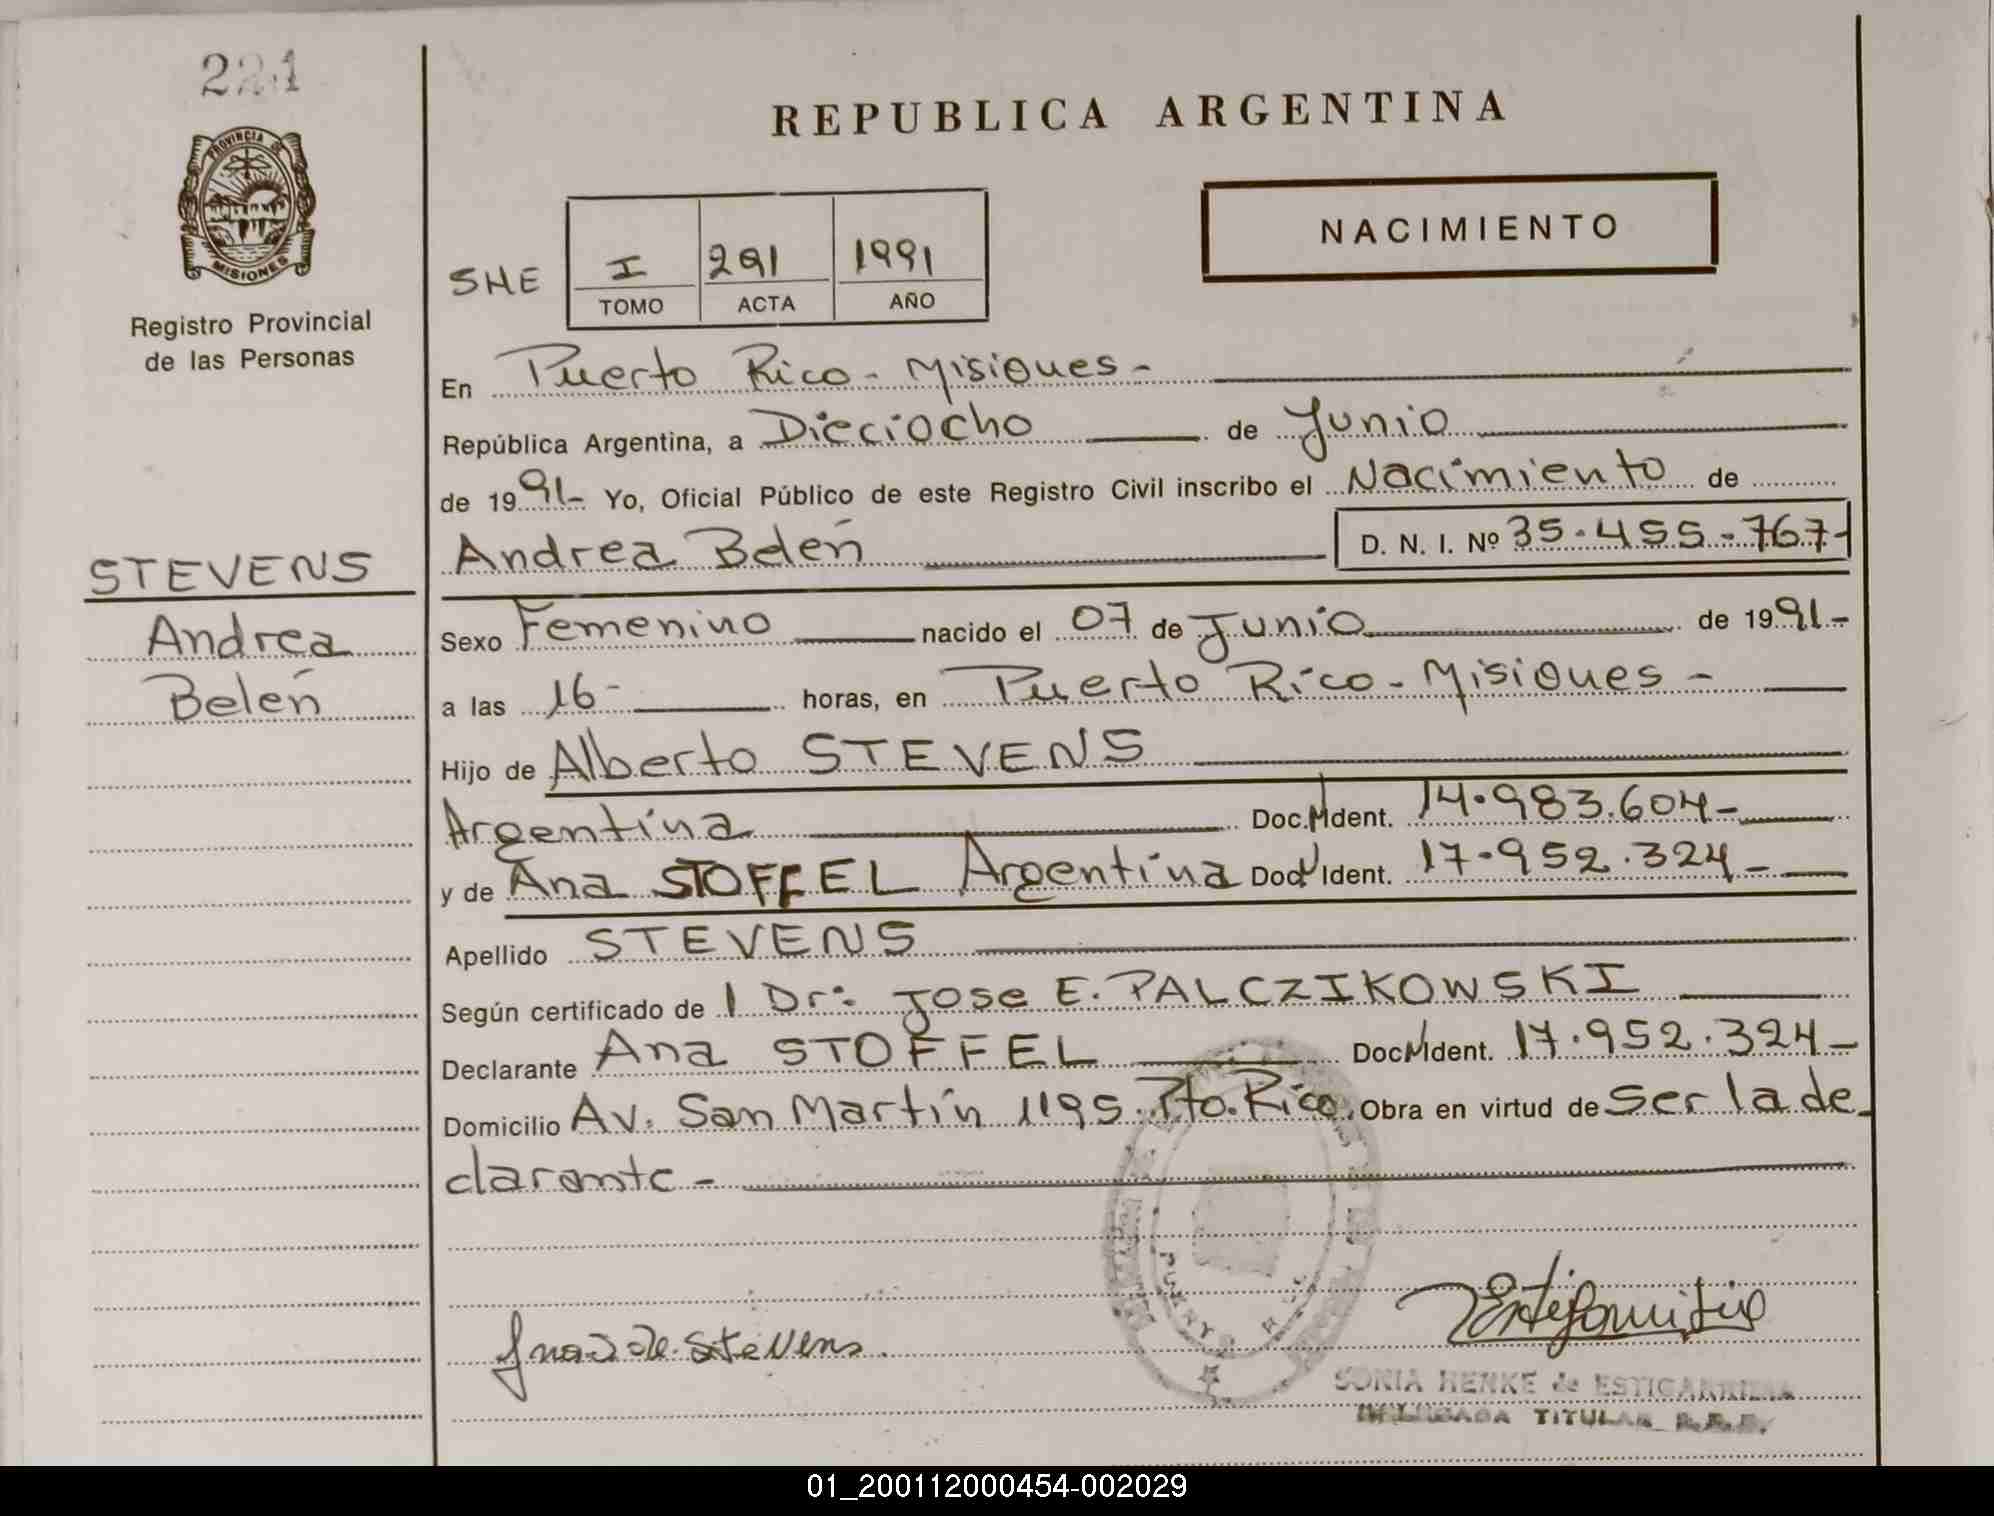 221
PROVINCIA DE
MISIONES
Registro Provincial
de las Personas
STEVENS
Andrea
Belén
REPUBLICA ARGENTINA
NACIMIENTO
SHE I 291 1991
TOMO ACTA AÑO
En Puerto Rico - Misiones -
República Argentina, a Dieciocho de Junio
de 1991- Yo, Oficial Público de este Registro Civil inscribo el Nacimiento de
Andrea Belén D. N. I. Nº 35.455.767-
Sexo Femenino nacido el 07 de Junio de 1991-
a las 16- horas, en Puerto Rico - Misiones -
Hijo de Alberto STEVENS
Argentina Doc. Ident. 14.983.604-
y de Ana STOFFEL Argentina Doc. Ident. 17.952.324-
Apellido STEVENS
Según certificado de l Dr: Jose E. PALCZIKOWSKI
Declarante Ana STOFFEL Doc. Ident. 17.952.324-
Domicilio Av. San Martín 1195. Pto. Rico. Obra en virtud de Ser la de
clarante -
de Stevens.
SONIA HENKE de
DELEGADA TITULAR
01_200112000454-002029